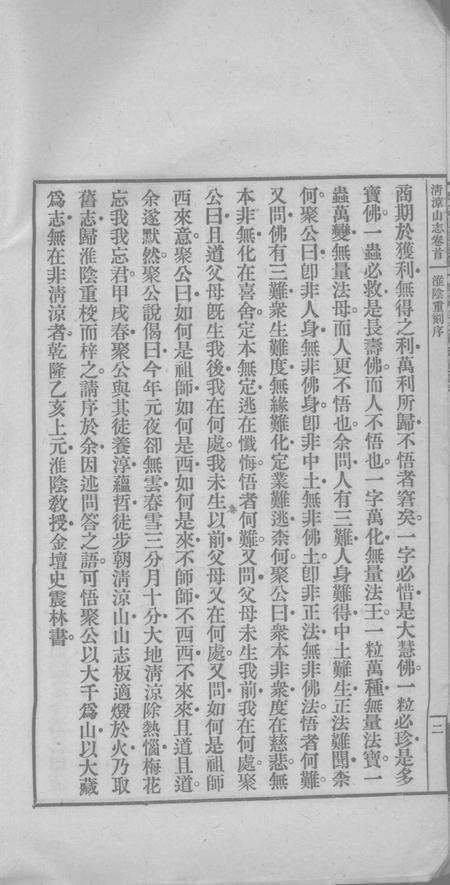 清涼山志卷首　淮陰重刻序　二
商期於獲利無得之利萬利所歸不悟者窘矣一字必惜是大慧佛一粒必珍是多
寶佛一蟲必救是長壽佛而人不悟也一字萬化無量法王一粒萬種無量法寶一
蟲萬變無量法母而人更不悟也余問人有三難人身難得中土難生正法難聞柰
何聚公曰卽非人身無非佛身卽非中土無非佛土卽非正法無非佛法悟者何難
又問佛有三難衆生難度無緣難化定業難逃柰何聚公曰衆本非衆度在慈悲無
本非無化在喜舍定本無定逃在懺悔悟者何難又問父母未生我前我在何處聚
公曰且道父母旣生我後我在何處我未生以前父母又在何處又問如何是祖師
西來意聚公曰如何是祖師如何是西如何是來不師師不西西不來來且道且道
余遂默然聚公說偈曰今年元夜卻無雲春雪三分月十分大地淸涼除熱惱梅花
忘我我忘君甲戌春聚公與其徒養淳蘊哲徒步朝淸涼山山志板適燬於火乃取
舊志歸淮陰重梭而梓之請序於余因述問答之語可悟聚公以大千爲山以大藏
爲志無在非淸涼者乾隆乙亥上元淮陰敎授金壇史震林書